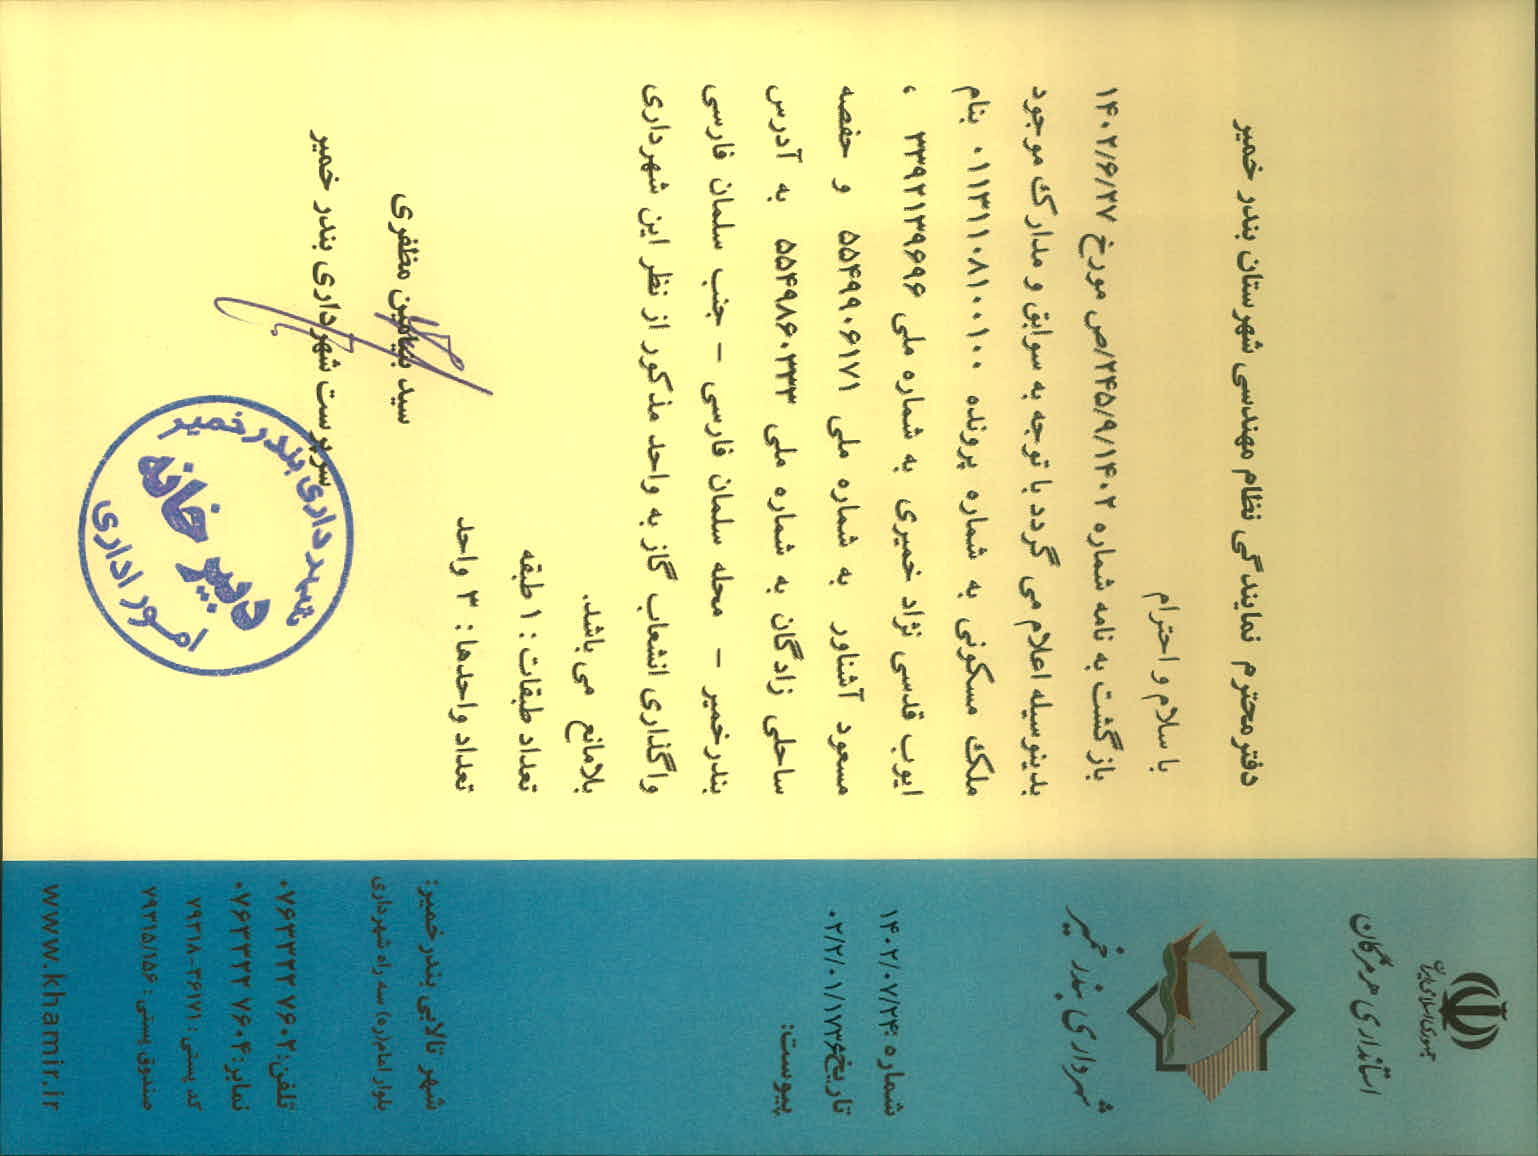 جمهوری اسلامی ایران
استانداری هرمزگان
شهرداری بندر خمیر
شماره: ۱۴۰۲/۰۷/۲۴
تاریخ: ۰۲/۲/۰۱/۱۷۳۶
پیوست:
دفتر محترم نمایندگی نظام مهندسی شهرستان بندر خمیر
با سلام و احترام
بازگشت به نامه شماره ۲۴۵/۹/۱۴۰۲/ص مورخ ۱۴۰۲/۶/۲۷
بدینوسیله اعلام می گردد با توجه به سوابق و مدارک موجود
ملک مسکونی به شماره پرونده ۰۱۱۳۱۱۰۸۱۰۰۱۰۰ بنام
ایوب قدسی نژاد خمیری به شماره ملی ۳۳۹۲۱۳۹۶۹۶ ،
مسعود آشناور به شماره ملی ۵۵۴۹۹۰۶۱۷۱ و حفصه
ساحلی زادگان به شماره ملی ۵۵۴۹۸۶۰۳۳۳ به آدرس
بندرخمیر - محله سلمان فارسی - جنب سلمان فارسی
واگذاری انشعاب گاز به واحد مذکور از نظر این شهرداری
بلامانع می باشد.
تعداد طبقات: ۱ طبقه
تعداد واحدها: ۳ واحد
سید بنیامین مظفری
سرپرست شهرداری بندر خمیر
شهرداری بندر خمیر
دبیر خانه
امور اداری
شهر تالابی بندر خمیر:
بلوار امام(ره) سه راه شهرداری
تلفن: ۰۷۶۳۳۲۳ ۷۶۰۲
نمابر: ۰۷۶۳۳۲۳ ۷۶۰۴
کد پستی: ۷۹۳۱۸-۳۶۱۷۱
صندوق پستی: ۷۹۳۱۵/۱۵۶
www.khamir.ir